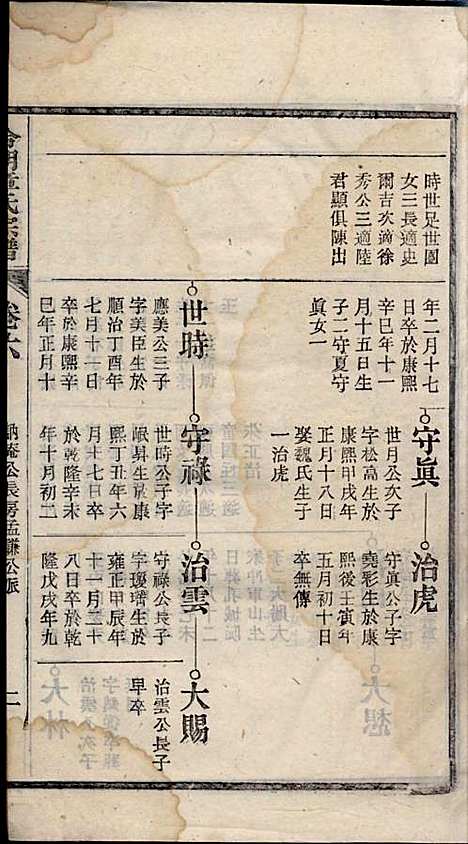 時世足世園
女三長適史
爾吉次適徐
秀公三適陸
君顯俱陳出
年二月十七
日卒於康熙
辛巳年十一
月十五日生
子二守夏守
眞女一
守眞
世月公次子
字松高生於
康熙甲戌年
正月十八日
娶魏氏生子
一治虎
治虎
守眞公子字
堯彩生於康
熙後壬寅年
五月初十日
卒無傳
世時
應美公三子
字美臣生於
順治丁酉年
七月十一日
卒於康熙辛
巳年正月十
守祿
世時公子字
岷昇生於康
熙丁丑年六
月十七日卒
於乾隆辛未
年十月初二
治雲
守祿公長子
字瓊瑨生於
雍正甲辰年
十一月二十
八日卒於乾
隆戊戌年九
大賜
治雲公長子
早卒
章氏宗譜
卷六
公長房孟謙公派
二